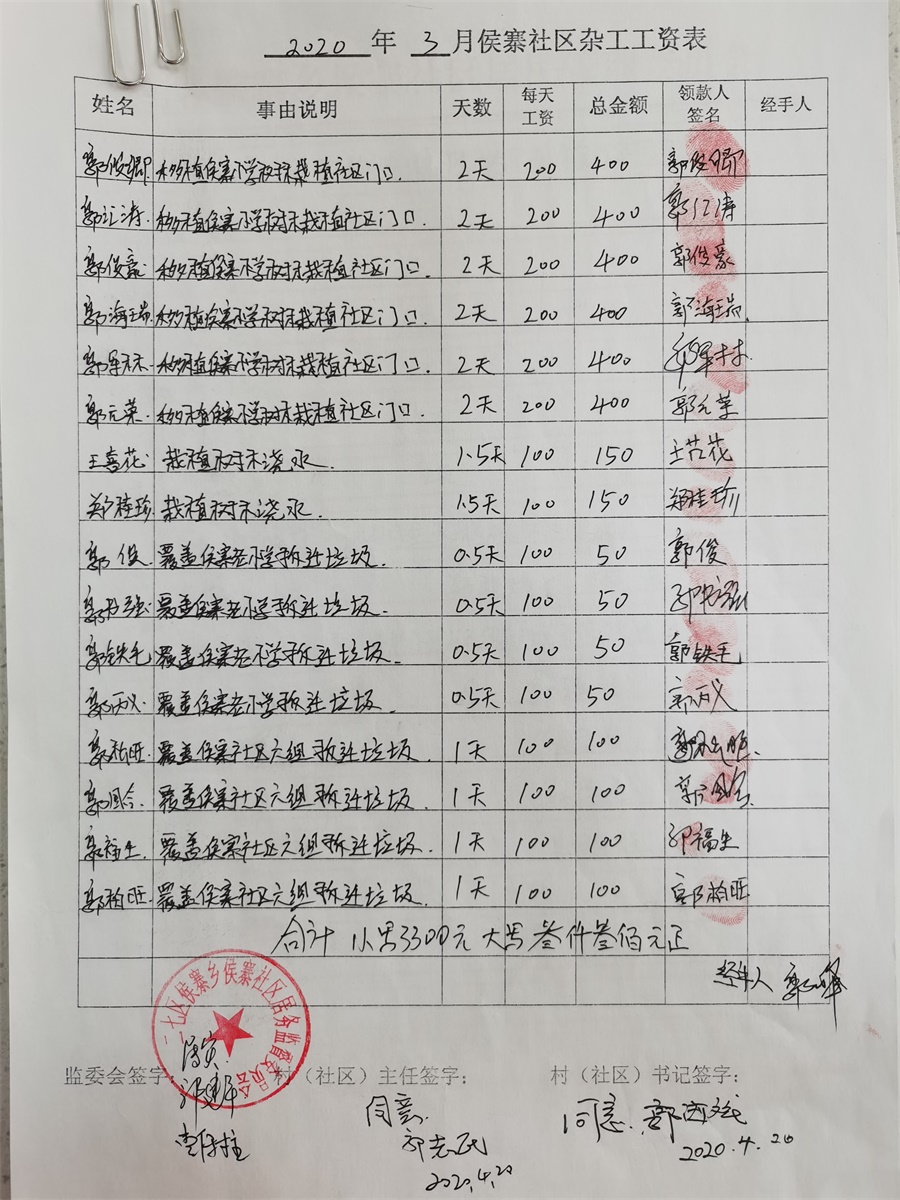 2020 年 3 月侯寨社区杂工工资表
姓名 事由说明 天数 每天工资 总金额 领款人签名 经手人
郭俊卿 移植侯寨小学树木栽植社区门口. 2天 200 400 郭俊卿
郭江涛. 移植侯寨小学树木栽植社区门口. 2天 200 400 郭江涛
郭俊豪 移植侯寨小学树木栽植社区门口. 2天 200 400 郭俊豪
郭海瑞 移植侯寨小学树木栽植社区门口. 2天 200 400 郭海瑞
郭军林. 移植侯寨小学树木栽植社区门口. 2天 200 400 郭军林.
郭元英. 移植侯寨小学树木栽植社区门口. 2天 200 400
王喜花 栽植树木浇水. 1.5天 100 150
郑桂珍 栽植树木浇水. 1.5天 100 150 郑桂珍
郭俊. 覆盖侯寨老小学拆迁垃圾. 0.5天 100 50 郭俊
覆盖侯寨老小学拆迁垃圾. 0.5天 100 50
郭铁毛 覆盖侯寨老小学拆迁垃圾. 0.5天 100 50 郭铁毛
郭丙义. 覆盖侯寨老小学拆迁垃圾. 0.5天 100 50 郭丙义
郭柏旺. 覆盖侯寨社区六组拆迁垃圾. 1天 100 100
郭凤令. 覆盖侯寨社区六组拆迁垃圾. 1天 100 100
郭福生. 覆盖侯寨社区六组拆迁垃圾. 1天 100 100 郭福生
郭柏旺. 覆盖侯寨社区六组拆迁垃圾. 1天 100 100 郭柏旺
合计 小写3300元 大写叁仟叁佰元正
经手人
二七区侯寨乡侯寨社区居务监督委员会
监委会签字: 村（社区）主任签字: 村（社区）书记签字:
同意. 同意.
郭志民
2020.4.20 2020.4.20